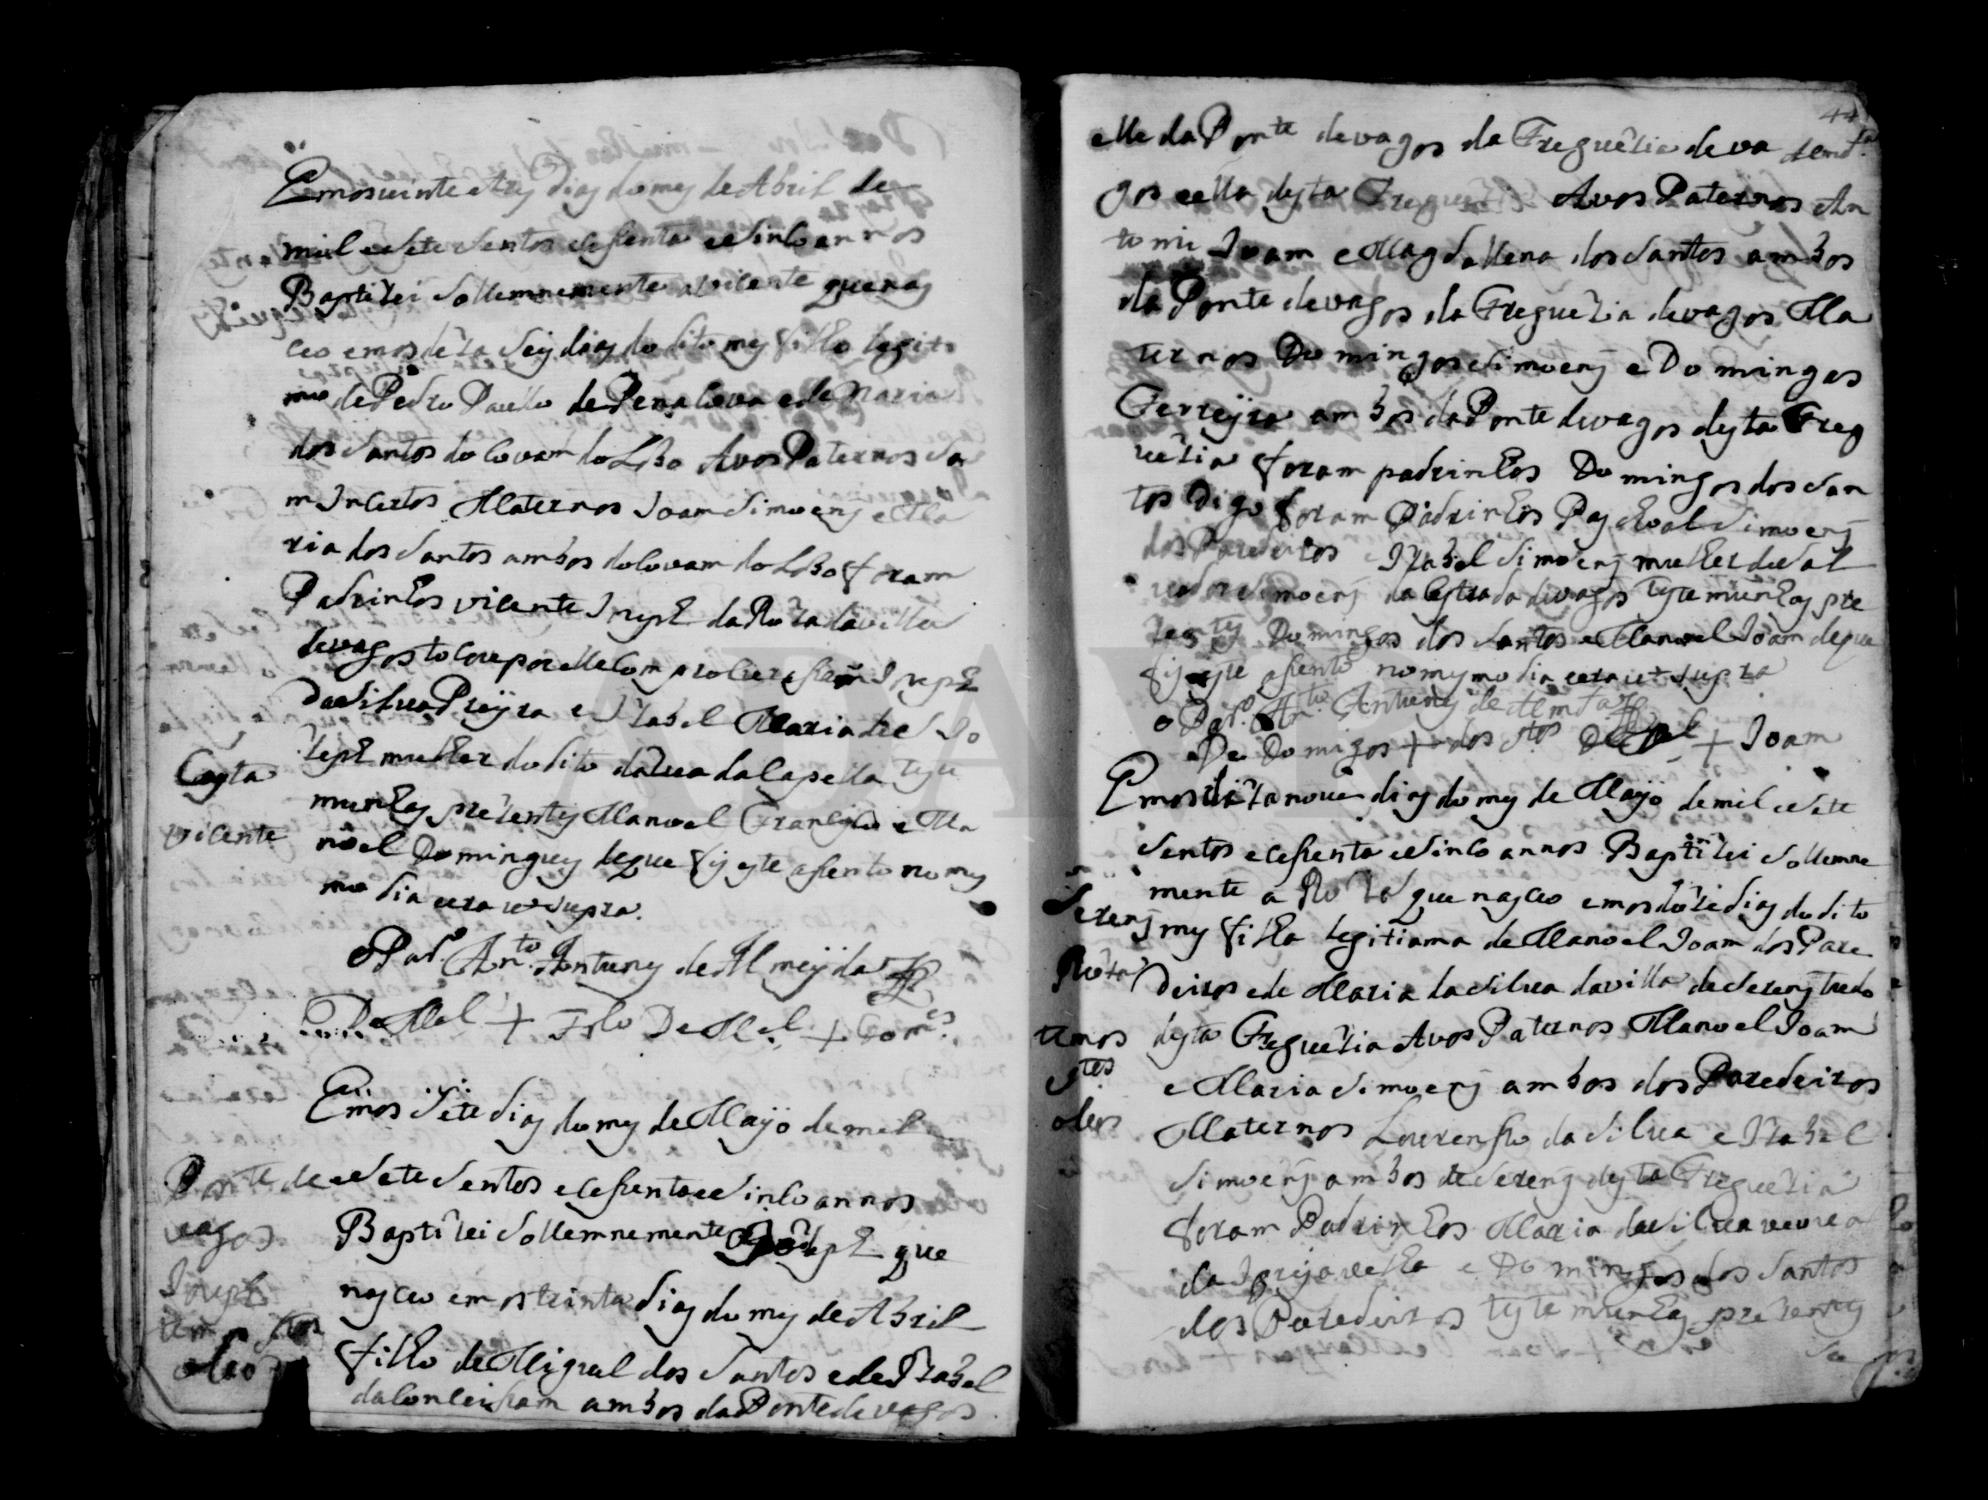 Emos vinte e trez dias do mes de Abril de
mil e sete sentos e sesenta e sinco annos
Baptizei sollemnemente a vicente que nas
ceo emos deza seis dias do dito mes filho legiti
mo de Pedro Paullo de Penacova e de Maria
dos Santos do Covam do Lobo Avos Paternos sa
m Incertos Maternos Joam Simoens e Ma
ria dos Santos ambos do Covam do Lobo foram
Padrinhos vicente Joseph da Roza da villa
de vagos tocou por elle Com procuresam Joseph
da Silva Preyra e Izabel Maria de Jo
zeph mulher do dito da rua da Capella teste
munhas prezentes Manoel Francisco e Ma
noel Domingues de que fis este asento no mes
mo dia e era ut supra.
o Par.º Ant.º Antunes de Almeyda
De M.el + Fr.co De M.el + Dom.es
Costa
vicente
Emos sete dias do mes de Mayo de mil
e sete sentos e sesenta e sinco annos
Baptizei sollemnemente Joseph que
nasceo emos trinta dias do mes de Abril
filho de Miguel dos Santos e de Izabel
da Conceisam ambos da Ponte de vagos
Ponte de
vagos
Joseph
temos stos
oleos
44
elle da Ponte de vagos da Freguezia de va
gos e ella desta Freguezia Avos Paternos An
tonio Joam e Magdallena dos Santos ambos
da Ponte de vagos da Freguezia de vagos Ma
ternos Domingos Simoens e Domingas
Ferreyra ambos da Ponte de vagos desta Freg
uezia foram padrinhos Domingos dos San
tos Digo foram Padrinhos Pascoal Simoens
dos Paredeiros e Izabel Simoens mulher de Sal
vador Simoens da Estrada de vagos testemunhas pre
zentes Domingos dos Santos e Manoel Joam de que
fis este asento no mesmo dia e era ut supra
o Par.º Ant.º Antunes de Almda
De Domigos + dos stos De M.el + Joam
Emos deza nove dias do mes de Mayo de mil e sete
sentos e sesenta e sinco annos Baptizei sollemne
mente a Roza que nasceo emos doze dias do dito
mes filha legitima de Manoel Joam dos Pare
deiros e de Maria da Silva da villa de Serens tudo
desta Freguezia Avos Paternos Manoel Joam
e Maria Simoens ambos dos Paredeiros
Maternos Lourenso da Silva e Izabel
Simoens ambos de Serens desta Freguezia
foram Padrinhos Maria da Silva veuva
da Igreja velha e Domingos dos Santos
dos Paredeiros testemunhas prezentes
Serens
Roza
temos
stos
oleos